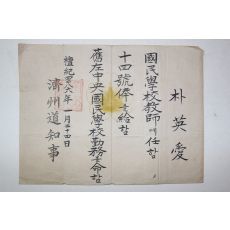 朴英愛
國民學校敎師에任함
十四號俸를給함
舊左中央國民學校勤務를命함
檀紀四二八六年一月二十四日
濟州道知事